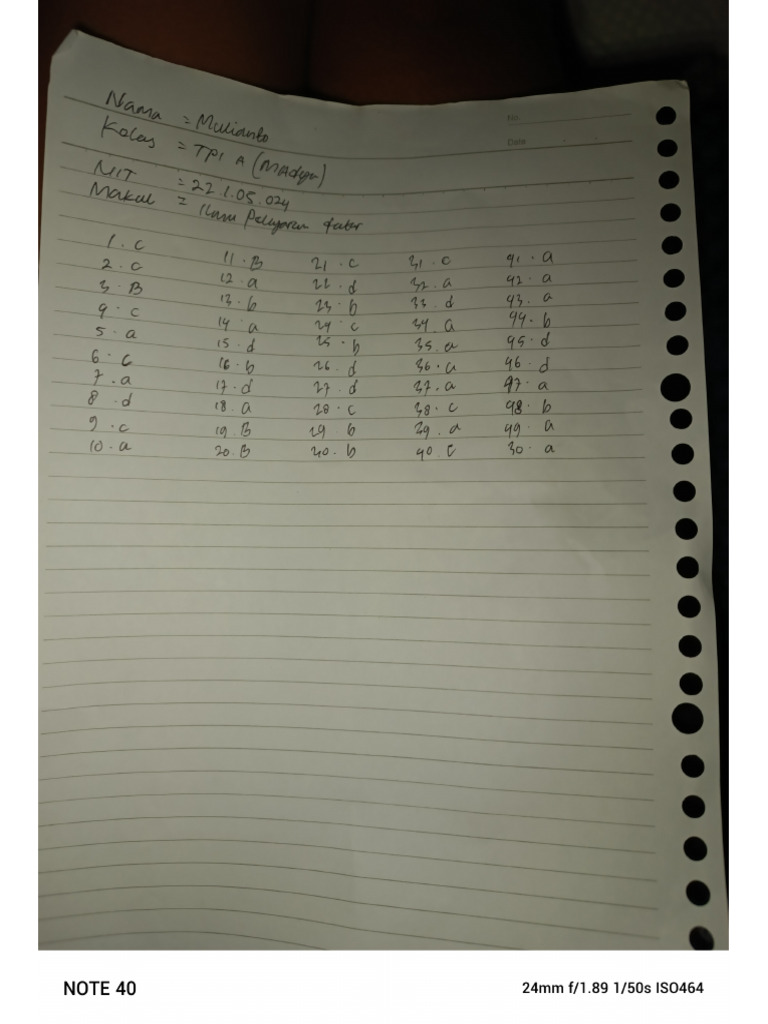 Nama = Mulianto
No.
Kelas = TPI A (Madya)
Date
NIT = 22.1.05.024
Makul = Ilmu Pelayaran datar
1. C 11. B 21. C 31. C 41. a
2. C 12. a 22. d 32. a 42. a
3. B 13. b 23. b 33. d 43. a
4. C 14. a 24. C 34. a 44. b
5. a 15. d 25. b 35. a 45. d
6. C 16. b 26. d 36. a 46. d
7. a 17. d 27. d 37. a 47. a
8. d 18. a 28. C 38. C 48. b
9. C 19. B 29 b 39. a 49. a
10. a 20. B 30. b 40. C 30. a
NOTE 40
24mm f/1.89 1/50s ISO464